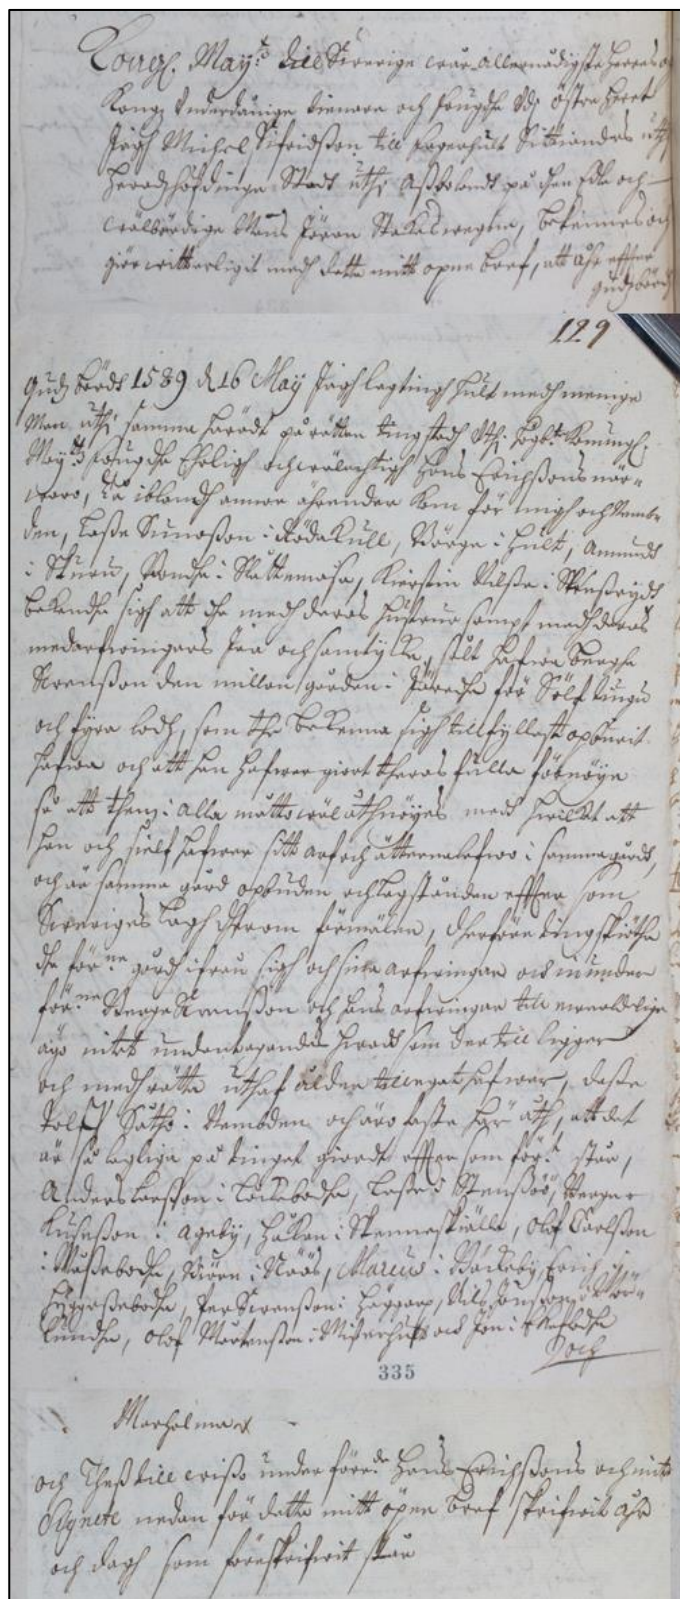 Kongl. May:tz till Swerige wår allernådigste Herres och
Kongz Underdånige tienare och fougdhe Udi östra Heret
Jagh Michel Sifridßon till Fagerhult Sittiandes uthi
Heredzhöfdinge Stadt uthi Aßbolandt på then Edle och
wälbördige Mans Jöran Stakes wegna, bekennes och
giör witterligit medh dette mitt opne bref, att åhr effter
gudz börd
129
Gudz bördt 1589 d 16 May Jagh lagtingh hult medh menige
Man uthi samma häredt på rätten tingstadh Uthi högbt. Konungl.
May:tz fougdhe Ehrligh och wälachtigh Hans Erichßons när=
waro, då iblandh annor ährender kom för migh och Nembn
den, Laße Sunaßon i Röda kull, Börge i Hult, Amundt
i Skuru, Bondhe i Slättemåsa, Kierstin Nilße i
bekendhe sigh att the medh deras hustrur sampt medh deras
medarfwingars Jaa och samtyckie, sålt hafwa Berge
Swenßon den millan gården i för Sölf tiugu
och fyra lodh, som the bekenna sigh till fyllest opburit
hafwa och att han hafwer giort theras fulla förnöije
så att them i alla motto wäl åthnöijes medt hwilket att
han och sielf hafwer sitt arf och ätterna lefwo i samma gårdt,
och är samma gård opbuden och lagstånden effter som
Sweriges lagh therom förmäler, therföre tingskiöthe
the för:ne gårdh ifrån sigh och sina arfwingar och in under
för:ne Berge Swenßon och hans arfwingar till ewerdelige
ägo intet undantagandes hwadt som der till ligger
och medh rätta uthaf ålder tillegat hafwer, deße
tolff Såtho i Nembden och äro faste här uth, att det
är så lagliga på tinget giordt effter som för:t står,
Anders Larßon i Låckebodhe, Laße i Stensiöö, Berge
i Ageby, Håkan i Skenneskiälle, Olof Carlßon
i Måßebodhe, Biörn i Näås, Marcus i Bäckeby, Erich i
Hyggeßebodhe, Per Swenßon i Häggarp, Nils Jonßon i
lundhe, Olof Mårtenßon i Misterhult och Jon i
Och
335
Marholma
och Theß till wißo under förr:de Hans Erichßons och mitt
Signete nedan för dette mitt öpen bref skrifwit åhr
och dagh som föreskrifwit står